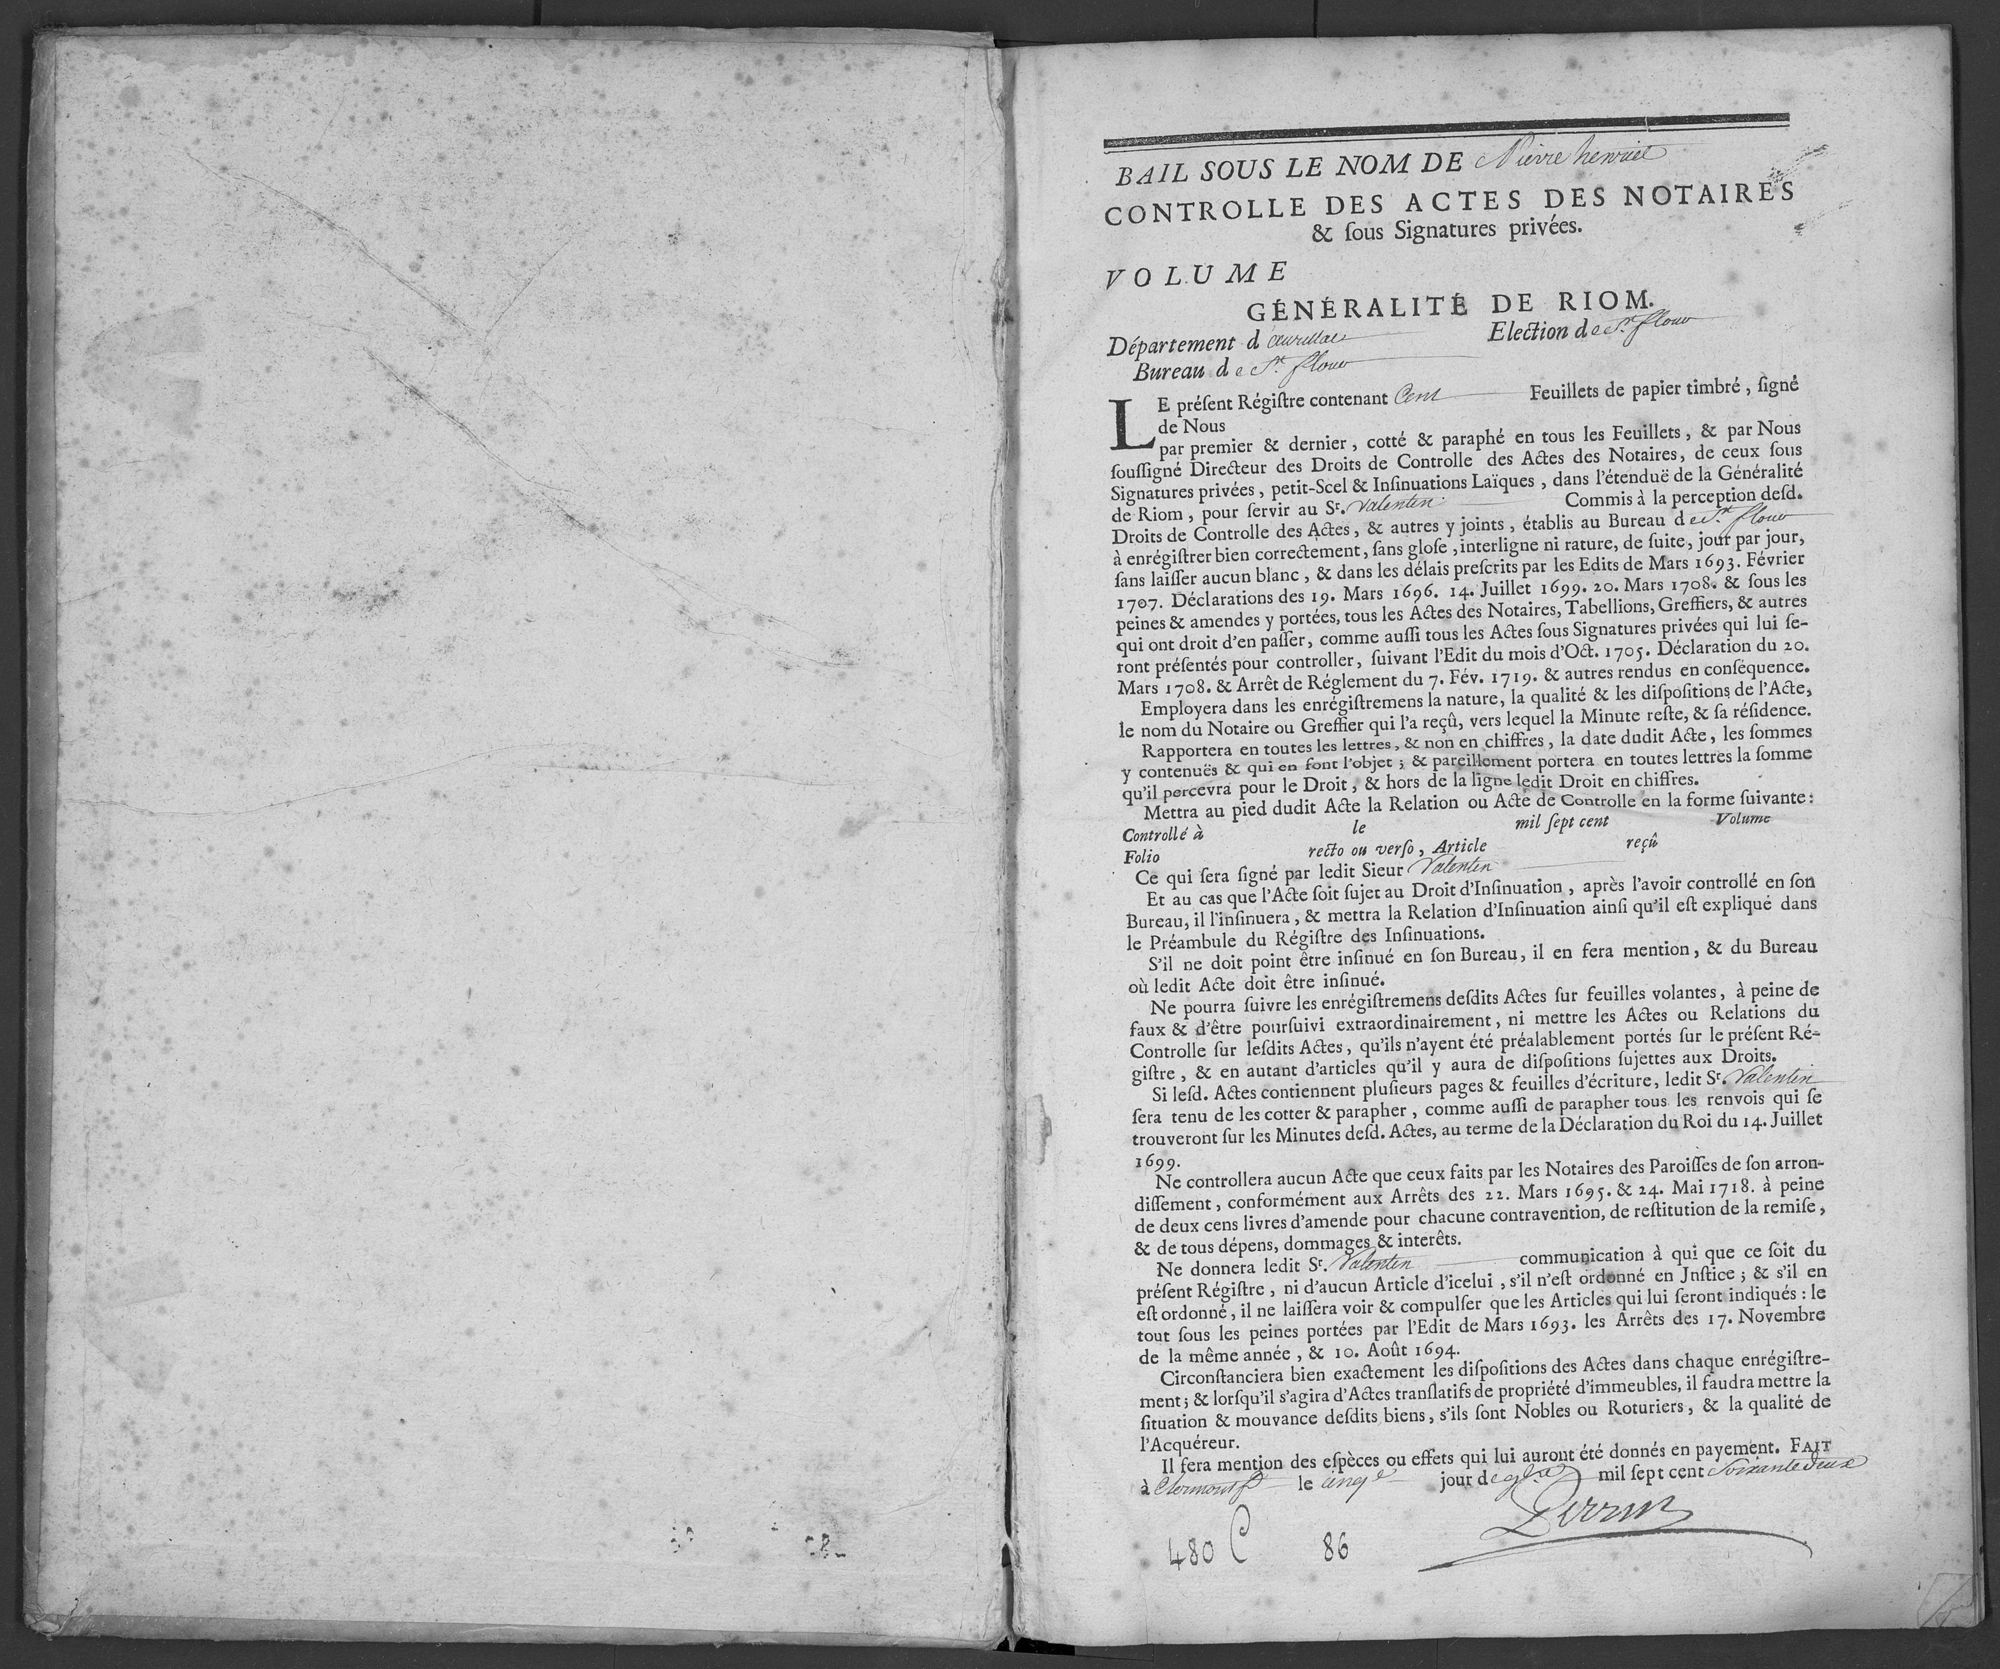 BAIL SOUS LE NOM DE Pierre henriet
CONTROLLE DES ACTES DES NOTAIRES
& ſous Signatures privées.
VOLUME
GÉNÉRALITÉ DE RIOM.
Département d'aurillac Election de St. flour
Bureau de St. flour
LE préſent Régiſtre contenant Cent Feuillets de papier timbré, ſigné
de Nous
par premier & dernier, cotté & paraphé en tous les Feuillets, & par Nous
ſouſſigné Directeur des Droits de Controlle des Actes des Notaires, de ceux ſous
Signatures privées, petit-Scel & Inſinuations Laïques, dans l'étenduë de la Généralité
de Riom, pour ſervir au Sr. Valentin Commis à la perception deſd.
Droits de Controlle des Actes, & autres y joints, établis au Bureau de St. flour
à enrégiſtrer bien correctement, ſans gloſe, interligne ni rature, de ſuite, jour par jour,
ſans laiſſer aucun blanc, & dans les délais preſcrits par les Edits de Mars 1693. Février
1707. Déclarations des 19. Mars 1696. 14. Juillet 1699. 20. Mars 1708. & ſous les
peines & amendes y portées, tous les Actes des Notaires, Tabellions, Greffiers, & autres
qui ont droit d'en paſſer, comme auſſi tous les Actes ſous Signatures privées qui lui ſe-
ront préſentés pour controller, ſuivant l'Edit du mois d'Oct. 1705. Déclaration du 20.
Mars 1708. & Arrêt de Réglement du 7. Fév. 1719. & autres rendus en conſéquence.
Employera dans les enrégiſtremens la nature, la qualité & les diſpoſitions de l'Acte,
le nom du Notaire ou Greffier qui l'a reçû, vers lequel la Minute reſte, & ſa réſidence.
Rapportera en toutes les lettres, & non en chiffres, la date dudit Acte, les ſommes
y contenuës & qui en font l'objet; & pareillement portera en toutes lettres la ſomme
qu'il percevra pour le Droit, & hors de la ligne ledit Droit en chiffres.
Mettra au pied dudit Acte la Relation ou Acte de Controlle en la forme ſuivante:
Controllé à le mil ſept cent Volume
Folio recto ou verſo, Article reçû
Ce qui ſera ſigné par ledit Sieur Valentin
Et au cas que l'Acte ſoit ſujet au Droit d'Inſinuation, après l'avoir controllé en ſon
Bureau, il l'inſinuera, & mettra la Relation d'Inſinuation ainſi qu'il eſt expliqué dans
le Préambule du Régiſtre des Inſinuations.
S'il ne doit point être inſinué en ſon Bureau, il en fera mention, & du Bureau
où ledit Acte doit être inſinué.
Ne pourra ſuivre les enrégiſtremens deſdits Actes ſur feuilles volantes, à peine de
faux & d'être pourſuivi extraordinairement, ni mettre les Actes ou Relations du
Controlle ſur leſdits Actes, qu'ils n'ayent été préalablement portés ſur le préſent Ré-
giſtre, & en autant d'articles qu'il y aura de diſpoſitions ſujettes aux Droits.
Si leſd. Actes contiennent pluſieurs pages & feuilles d'écriture, ledit Sr. Valentin
ſera tenu de les cotter & parapher, comme auſſi de parapher tous les renvois qui ſe
trouveront ſur les Minutes deſd. Actes, au terme de la Déclaration du Roi du 14. Juillet
1699.
Ne controllera aucun Acte que ceux faits par les Notaires des Paroiſſes de ſon arron-
diſſement, conformément aux Arrêts des 22. Mars 1695. & 24. Mai 1718. à peine
de deux cens livres d'amende pour chacune contravention, de reſtitution de la remiſe,
& de tous dépens, dommages & interêts.
Ne donnera ledit Sr. Valentin communication à qui que ce ſoit du
préſent Régiſtre, ni d'aucun Article d'icelui, s'il n'eſt ordonné en Jnſtice; & s'il en
eſt ordonné, il ne laiſſera voir & compulſer que les Articles qui lui ſeront indiqués: le
tout ſous les peines portées par l'Edit de Mars 1693. les Arrêts des 17. Novembre
de la même année, & 10. Août 1694.
Circonſtanciera bien exactement les diſpoſitions des Actes dans chaque enrégiſtre-
ment; & lorſqu'il s'agira d'Actes tranſlatifs de propriété d'immeubles, il faudra mettre la
ſituation & mouvance deſdits biens, s'ils ſont Nobles ou Roturiers, & la qualité de
l'Acquéreur.
Il fera mention des eſpèces ou effets qui lui auront été donnés en payement. FAIT
à Clermont fd le cinqe jour de mil ſept cent Soixante deux
Perrin
480 C 86